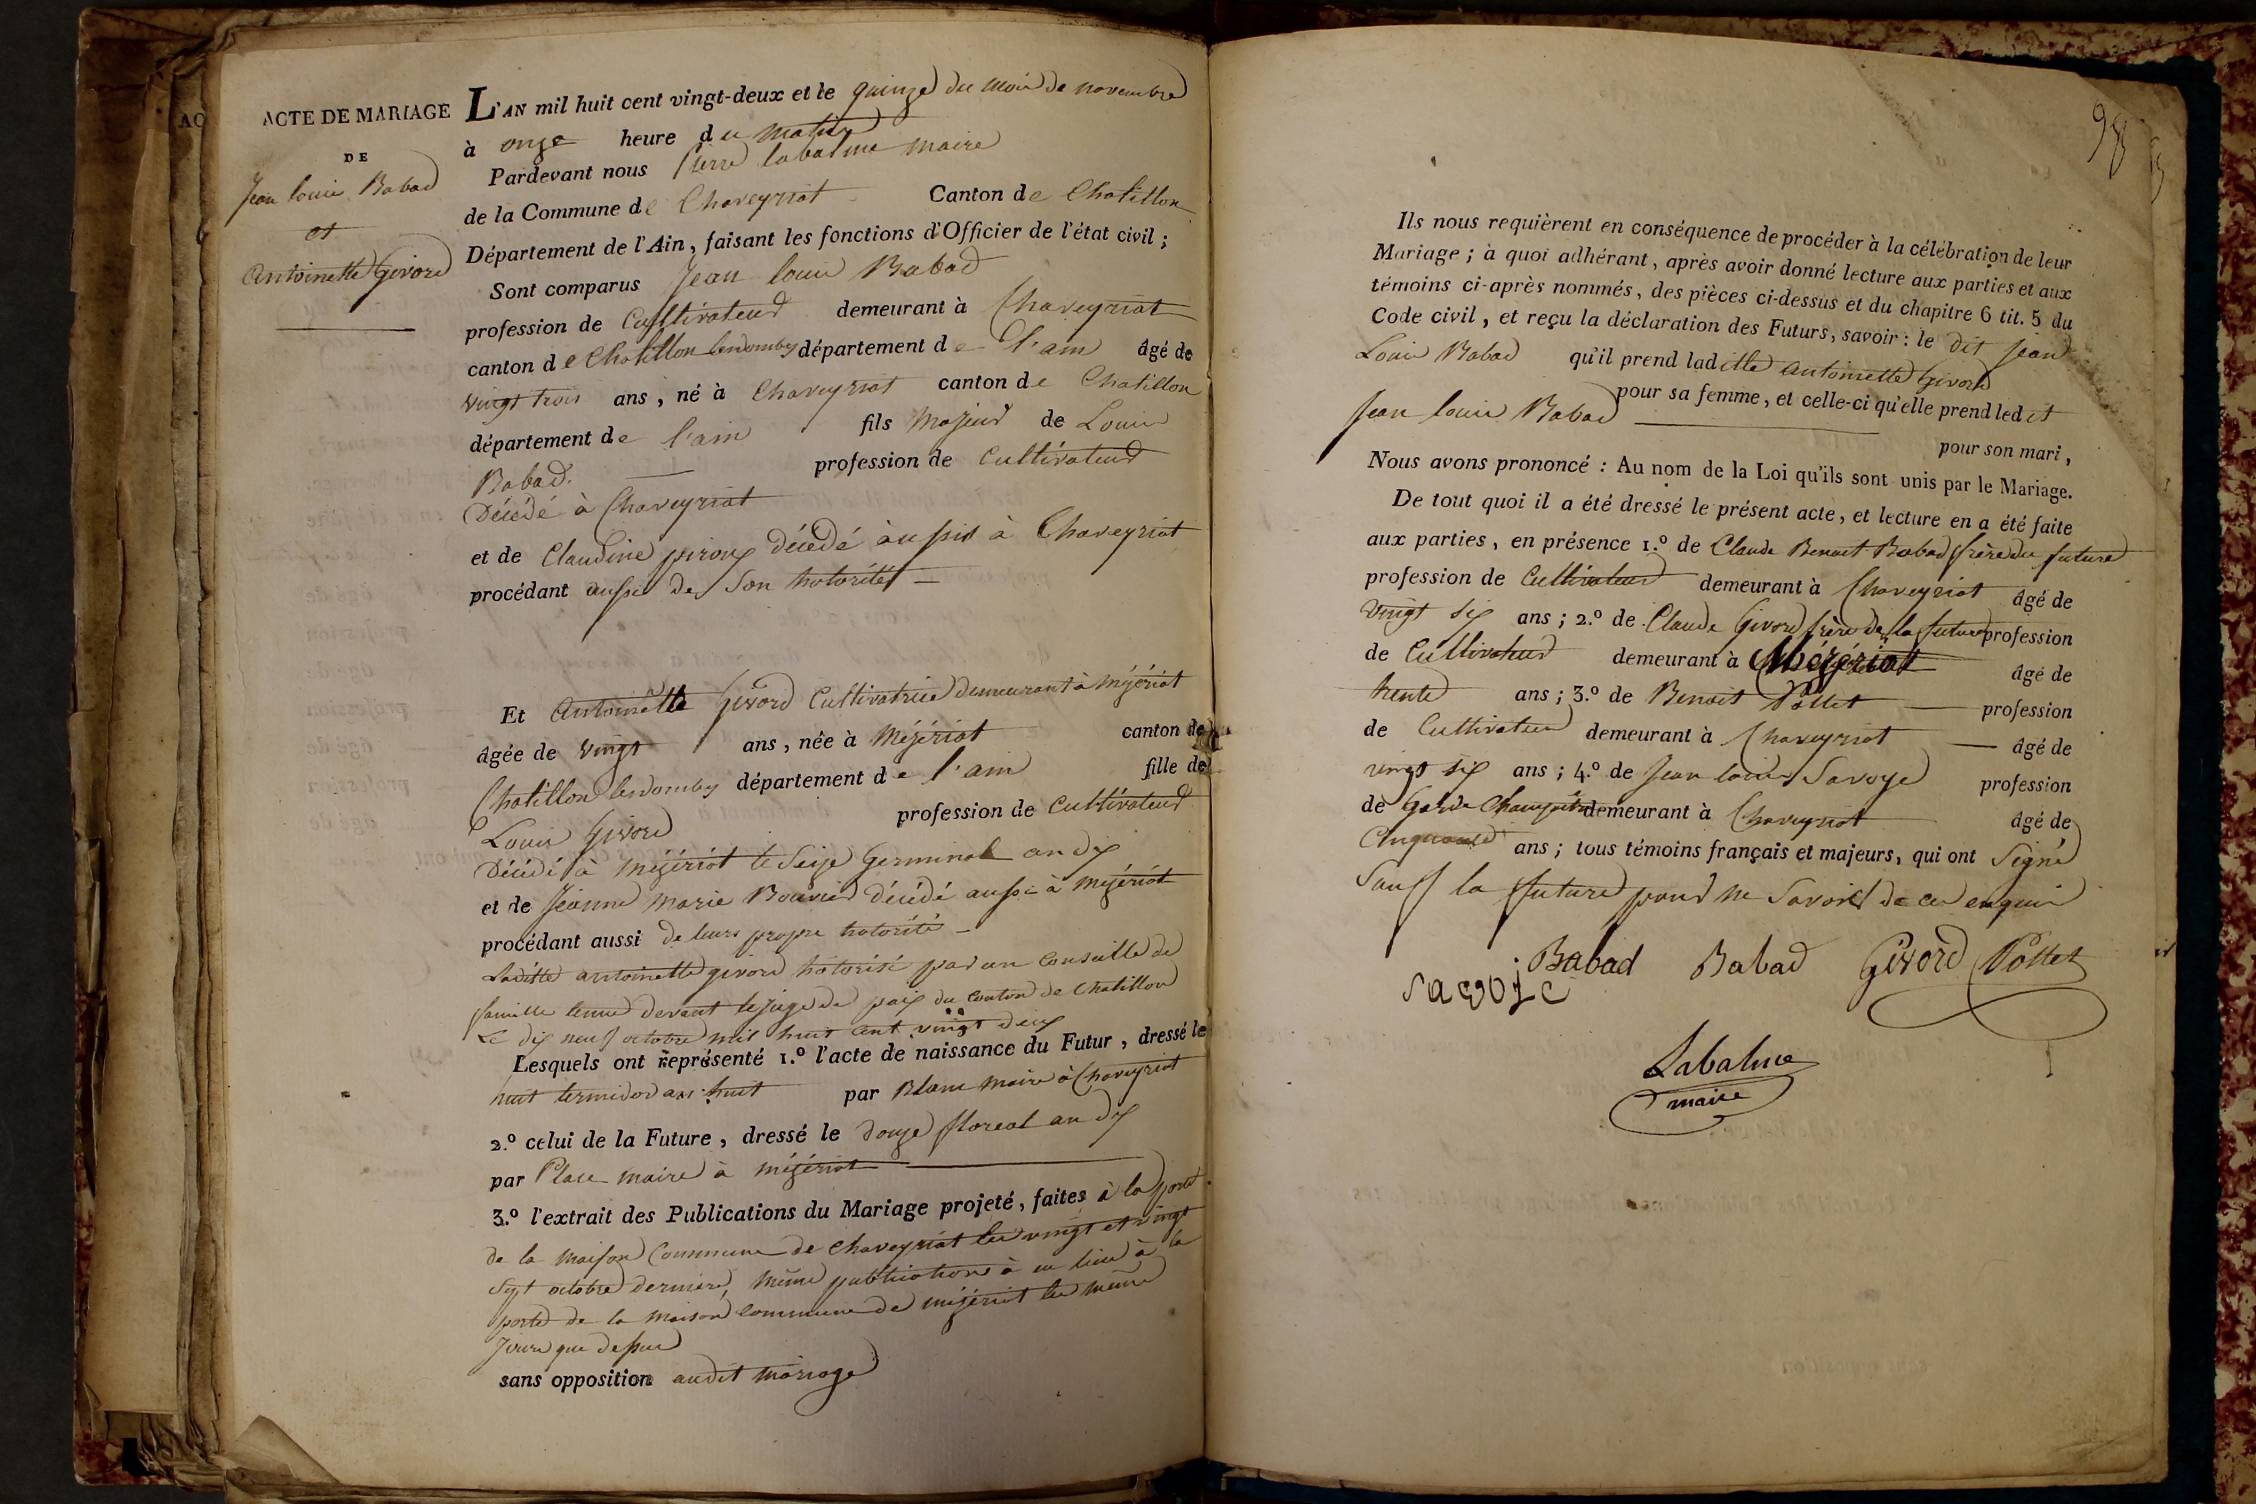 ACTE DE MARIAGE
DE
Jean louis Babad
et
Antoinette Givord
L'AN mil huit cent vingt-deux et le quinze du mois de novembre
à onze heure du matin
Pardevant nous Pierre labalme maire
de la Commune de Chaveyriat Canton de Chatillon
Département de l'Ain, faisant les fonctions d'Officier de l'état civil ;
Sont comparus Jean louis Babad
profession de Cultivateur demeurant à Chaveyriat
canton de Chatillon lesdombes département de l'ain âgé de
vingt trois ans, né à Chaveyriat canton de Chatillon
département de l'ain fils Majeur de Louis
Babad. profession de Cultivateur
Décédé à Chaveyriat
et de Claudine piroux décédé aussi à Chaveyriat
procédant aussi de Son hotorités
Et Antoinette Givord Cultivatrice demeurant à méjériat
âgée de vingt ans, née à Méjériat canton de
Chatillon lesdombes département de l'ain fille de
Louis Givord profession de Cultivateur
Décédé à Méjériat le Seize Germinal an dix
et de Jeanne Marie Bouvier décédé aussi à Méjériat
procédant aussi de leurs propre hotorité
Ladite antoinette givord hotorisé par un Conseille de
famille tenue devant le juge de paix du Canton de Chatillon
Le dix neuf octobre mil huit cent vingt deux
Lesquels ont représenté 1.º l'acte de naissance du Futur, dressé le
huit termidor an huit par Blanc Maire à Chaveyriat
2.º celui de la Future, dressé le douze floreal an dix
par Place maire à méjériat
3.º l'extrait des Publications du Mariage projeté, faites à la porte
de la maison Commune de Chaveyriat les vingt et vingt
Sept octobre dernier, même publications à eu lieu à la
porte de la maison commune de méjériat les même
Jours que dessus
sans opposition audit mariage
98
Ils nous requièrent en conséquence de procéder à la célébration de leur
Mariage ; à quoi adhérant, après avoir donné lecture aux parties et aux
témoins ci-après nommés, des pièces ci-dessus et du chapitre 6 tit. 5 du
Code civil, et reçu la déclaration des Futurs, savoir : le dit Jean
Louis Babad qu'il prend ladite antoinette Givord
pour sa femme, et celle-ci qu'elle prend ledit
Jean louis Babad
pour son mari,
Nous avons prononcé : Au nom de la Loi qu'ils sont unis par le Mariage.
De tout quoi il a été dressé le présent acte, et lecture en a été faite
aux parties, en présence 1.º de Claude Benoit Babad frère du future
profession de Cultivateur demeurant à Chaveyriat âgé de
vingt six ans ; 2.º de Claude Givord frère de la future profession
de Cultivateur demeurant à Méjériat âgé de
trente ans ; 3.º de Benoit Pollet profession
de Cultivateur demeurant à Chaveyriat âgé de
vingt six ans ; 4.º de Jean louis Savoye profession
de Garde Champêtre demeurant à Chaveyriat âgé de
Cinquante ans ; tous témoins français et majeurs, qui ont Signé
Sauf la future pour ne Savoir de ce enquis
Babad Babad Givord Pollet
savoie
Labalme
maire